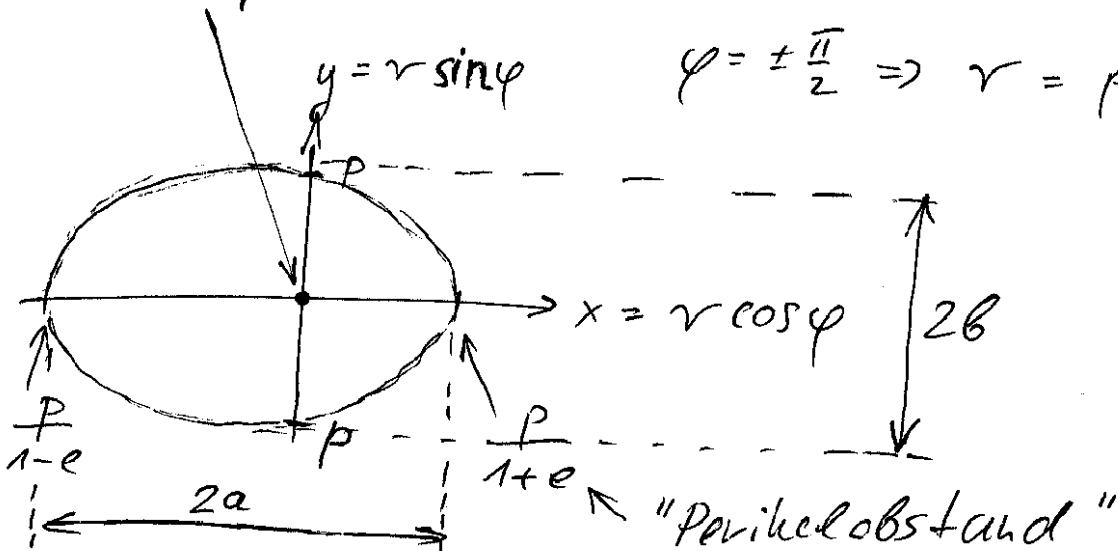 y = r sinφ
φ = ± π/2 ⇒ r = p
p
x = r cosφ
2b
p/(1-e)
p
p/(1+e)
2a
"Perihelabstand"